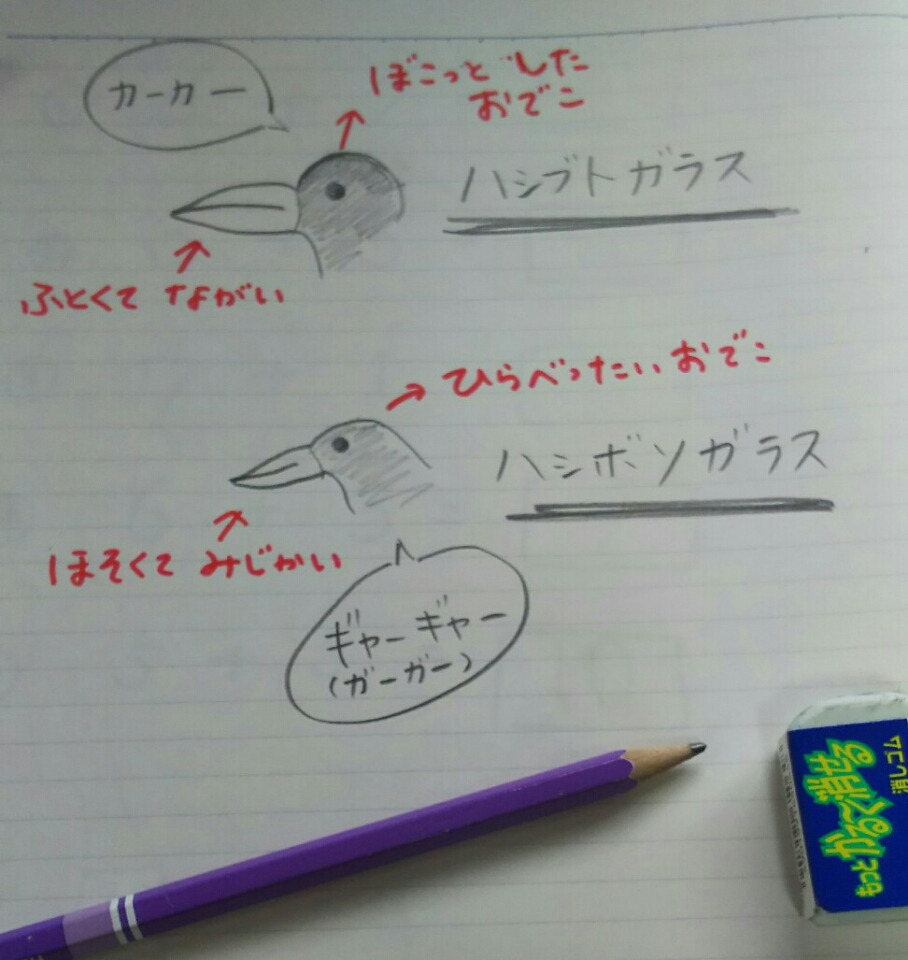 カーカー
ぼこっとした
おでこ
ハシブトガラス
ふとくて ながい
ひらべったい おでこ
ハシボソガラス
ほそくて みじかい
ギャーギャー
(ガーガー)
もっと
かる〜く消せる
消しゴム